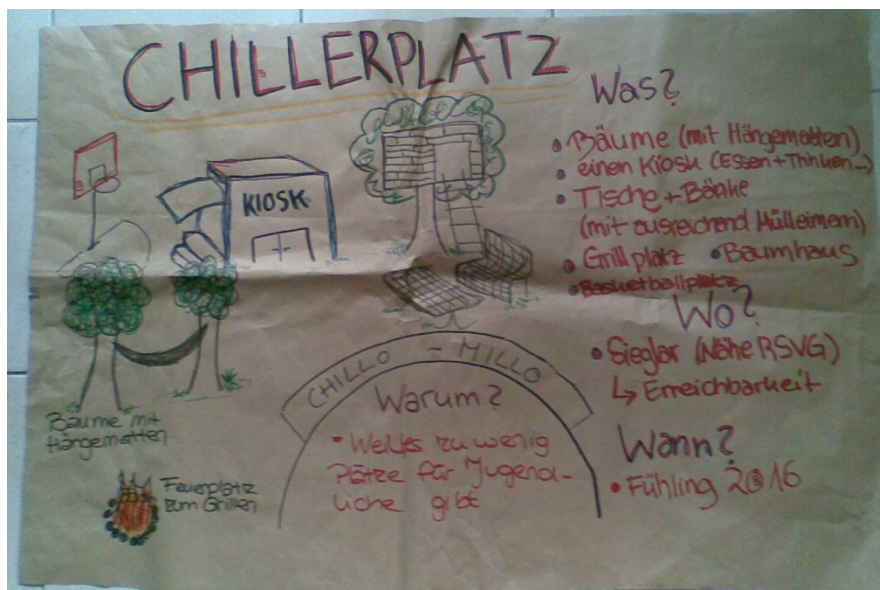 CHILLERPLATZ
KIOSK
Bäume mit
Hängematten
Feuerplatz
zum Grillen
CHILLO - MILLO
Warum?
• Weil's zu wenig
Plätze für Jugend-
liche gibt
Was?
• Bäume (mit Hängematten)
• einen Kiosk (Essen + Trinken...)
• Tische + Bänke
(mit ausreichend Mülleimern)
• Grillplatz • Baumhaus
• Basketballplatz
Wo?
• Sieglar (Nähe RSVG)
↳ Erreichbarkeit
Wann?
• Fühling 2016